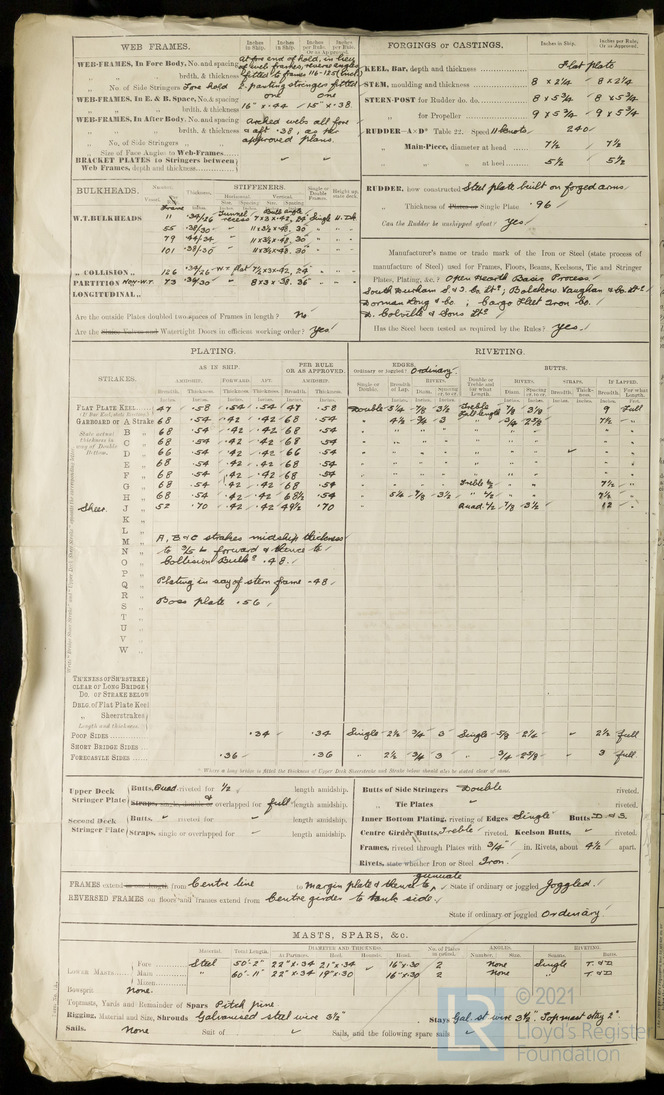 WEB FRAMES.
Inches in Ship. Inches in Ship. Inches per Rule. Inches per Rule. Or as Approved.
WEB-FRAMES, In Fore Body, No. and spacing At fore end of hold, in lieu
of web frames, reverse angles
brdth. & thickness fitted to frames 116-125 (incl)
No. of Side Stringers Fore hold 2 panting stringers fitted
WEB-FRAMES, In E. & B. Space, No. & spacing one one
brdth. & thickness 16" x .44 15" x .38
WEB-FRAMES, In After Body, No. and spacing Arched webs all fore
brdth. & thickness & aft .38, as per
No. of Side Stringers approved plans.
Size of Face Angles to Web-Frames
BRACKET PLATES to Stringers between
Web Frames, depth and thickness
BULKHEADS.
STIFFENERS.
Thickness. Horizontal Vertical. Single or Double Frames. Height up, state deck.
W.T. BULKHEADS 11 .34/.26 Tunnel recess 7 x 3 x .42, 24 Single U. Dk
55 .38/.30 " 11 x 3½ x .48, 30 " "
79 .44/.34 " 11 x 3½ x .48, 30 " "
101 .38/.30 " 11 x 3½ x .48, 30
" COLLISION " 126 .34/.26 W.T. flat 7½ x 3 x .42, 24 " "
PARTITION NON-W.T. 73 .34/.30 " 8 x 3 x .38, 36 " "
LONGITUDINAL "
Are the outside Plates doubled two spaces of Frames in length? No
Are the Sluice Valves and Watertight Doors in efficient working order? Yes
FORGINGS or CASTINGS.
Inches in Ship. Inches per Rule, Or as Approved.
KEEL, Bar, depth and thickness Flat plate
STEM, moulding and thickness 8 x 2¼ 8 x 2¼
STERN-POST for Rudder do. do. 8 x 5¾ 8 x 5¾
" for Propeller 9 x 5¾ 9 x 5¾
RUDDER—A×D² Table 22. Speed 11 knots 240
" Main-Piece, diameter at head 7½ 7½
" " at heel 5½ 5½
RUDDER, how constructed Steel plate built on forged arms.
" Thickness of Plates or Single Plate .96
Can the Rudder be unshipped afloat? Yes
Manufacturer's name or trade mark of the Iron or Steel (state process of
manufacture of Steel) used for Frames, Floors, Beams, Keelsons, Tie and Stringer
Plates, Plating, &c.? Open Hearth Basic Process.
South Durham S. & I. Co. Ltd; Bolckow Vaughan & Co. Ltd
Dorman Long & Co. ; Cargo Fleet Iron Co.
D. Colville & Sons Ltd
Has the Steel been tested as required by the Rules? Yes.
PLATING.
AS IN SHIP. PER RULE OR AS APPROVED.
STRAKES. AMIDSHIP. FORWARD. AFT. AMIDSHIP.
Breadth. Thickness. Thickness. Thickness. Breadth. Thickness.
RIVETING.
EDGES. BUTTS.
Ordinary or joggled? Ordinary.
RIVETS. STRAPS. IF LAPPED.
FLAT PLATE KEEL 47 .58 .54 .54 47 .58 Double 5¼ 7/8 3½ Treble 7/8 3 1/8 9 Full
GARBOARD or A Strake 68 .54 .42 .42 68 .54 " 4½ ¾ 3 full length ¾ 2 5/8 7½ "
B " 68 .54 .42 .42 68 .54
C " 68 .54 .42 .42 68 .54
D " 66 .54 .42 .42 66 .54
E " 68 .54 .42 .42 68 .54
F " 68 .54 .42 .42 68 .54
G " 68 .54 .42 .42 68 .54 Treble ½ 7½ "
H " 68 .54 .42 .42 68½ .54 " 5¼ 7/8 3½ " ½ " " 7½ "
Sheer. J " 52 .70 .42 .42 49½ .70 Quad. ½ 7/8 3½ 12 "
K "
L "
M " A, B & C strakes midship thickness
N " to 3/5 L forward & thence to
O " Collision Bulkd .48.
P "
Q " Plating in way of stern frame .48
R "
S " Boss plate .56
T "
U "
V "
W "
THICKNESS OF SH'RSTRKE
CLEAR OF LONG BRIDGE
DO. OF STRAKE BELOW
DBLG. of Flat Plate Keel
" Sheerstrakes
Length and thickness.
POOP SIDES .34 .34 Single 2½ ¾ 3 Single 5/8 2¼ 2½ full
SHORT BRIDGE SIDES
FORECASTLE SIDES .36 .36 " 2½ ¾ 3 " ¾ 2 5/8 3 full
* Where a long bridge is fitted the thickness of Upper Deck Sheerstrake and Strake below should also be stated clear of same.
Upper Deck Stringer Plate Butts, Quad riveted for ½ length amidship.
Straps, single, double or overlapped for full length amidship.
Second Deck Stringer Plate Butts, " riveted for " length amidship.
Straps, single or overlapped for length amidship.
Butts of Side Stringers Double riveted.
" Tie Plates riveted.
Inner Bottom Plating, riveting of Edges Single Butts D & S.
Centre Girder Butts, Treble riveted. Keelson Butts, riveted.
Frames, riveted through Plates with ¾" in. Rivets, about 4½ apart.
Rivets, state whether Iron or Steel Iron.
FRAMES extend in one length from Centre line to margin plate & thence to gunwale State if ordinary or joggled Joggled.
REVERSED FRAMES on floors and frames extend from Centre girder to tank side
State if ordinary or joggled Ordinary
MASTS, SPARS, &c.
Material. Total Length. DIAMETER AND THICKNESS. At Partners. Heel. Hound. Head. No. of Plates in round. ANGLES. Number. Size. RIVETING. Seams. Butts.
LOWER MASTS Fore Steel 50'-2" 22" x .34 21" x .34 16" x .30 2 None Single T & D
Main " 60'-11" 22" x .34 19" x .30 16" x .30 2 None " T & D
Mizzen
Bowsprit None.
Topmasts, Yards and Remainder of Spars Pitch pine
Rigging, Material and Size, Shrouds Galvanised steel wire 3½" Stays Gal. st. wire 3½". Topmast stay 2".
Sails. None Suit of Sails, and the following spare sails
© 2021
Lloyd's Register
Foundation
LR